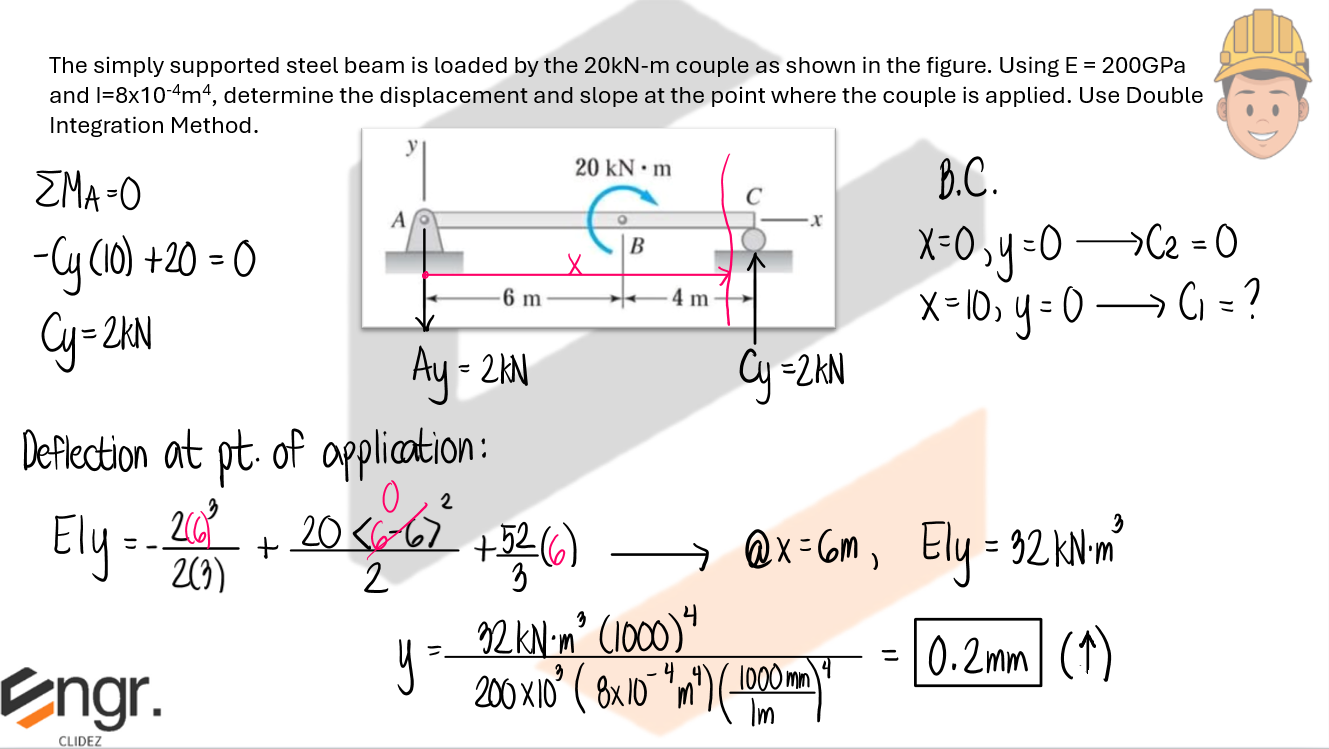 The simply supported steel beam is loaded by the 20kN-m couple as shown in the figure. Using E = 200GPa
and I=8x10⁻⁴m⁴, determine the displacement and slope at the point where the couple is applied. Use Double
Integration Method.
ΣMA=0
-Cy(10)+20=0
Cy=2kN
y
20 kN · m
A
B
C
x
X
6 m
4 m
Ay = 2kN
Cy =2kN
B.C.
X=0, y=0 ⟶ C2 = 0
X=10, y=0 ⟶ C1 = ?
Deflection at pt. of application:
EIy = - 2(6)³/2(3) + 20<6-6>²/2 + 52/3 (6) ⟶ @x=6m, EIy = 32kN·m³
0
y = 32kN·m³ (1000)⁴ / 200x10³ (8x10⁻⁴m⁴)(1000mm/1m)⁴ = 0.2mm (↑)
Engr.
CLIDEZ